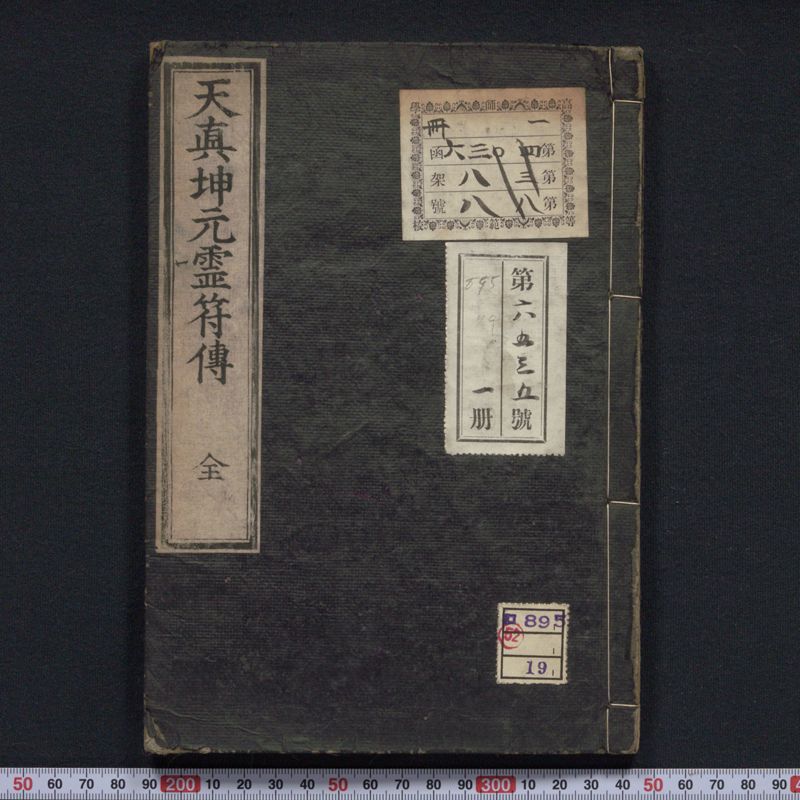 天真坤元霊符傳
全
高等師範學校
一冊
第四三六函
第三八架
第八八號
第六五三五號
一册
ロ895
52
19
50 60 70 80 90 200 10 20 30 40 50 60 70 80 90 300 10 20 30 40 50 60 70 80 90